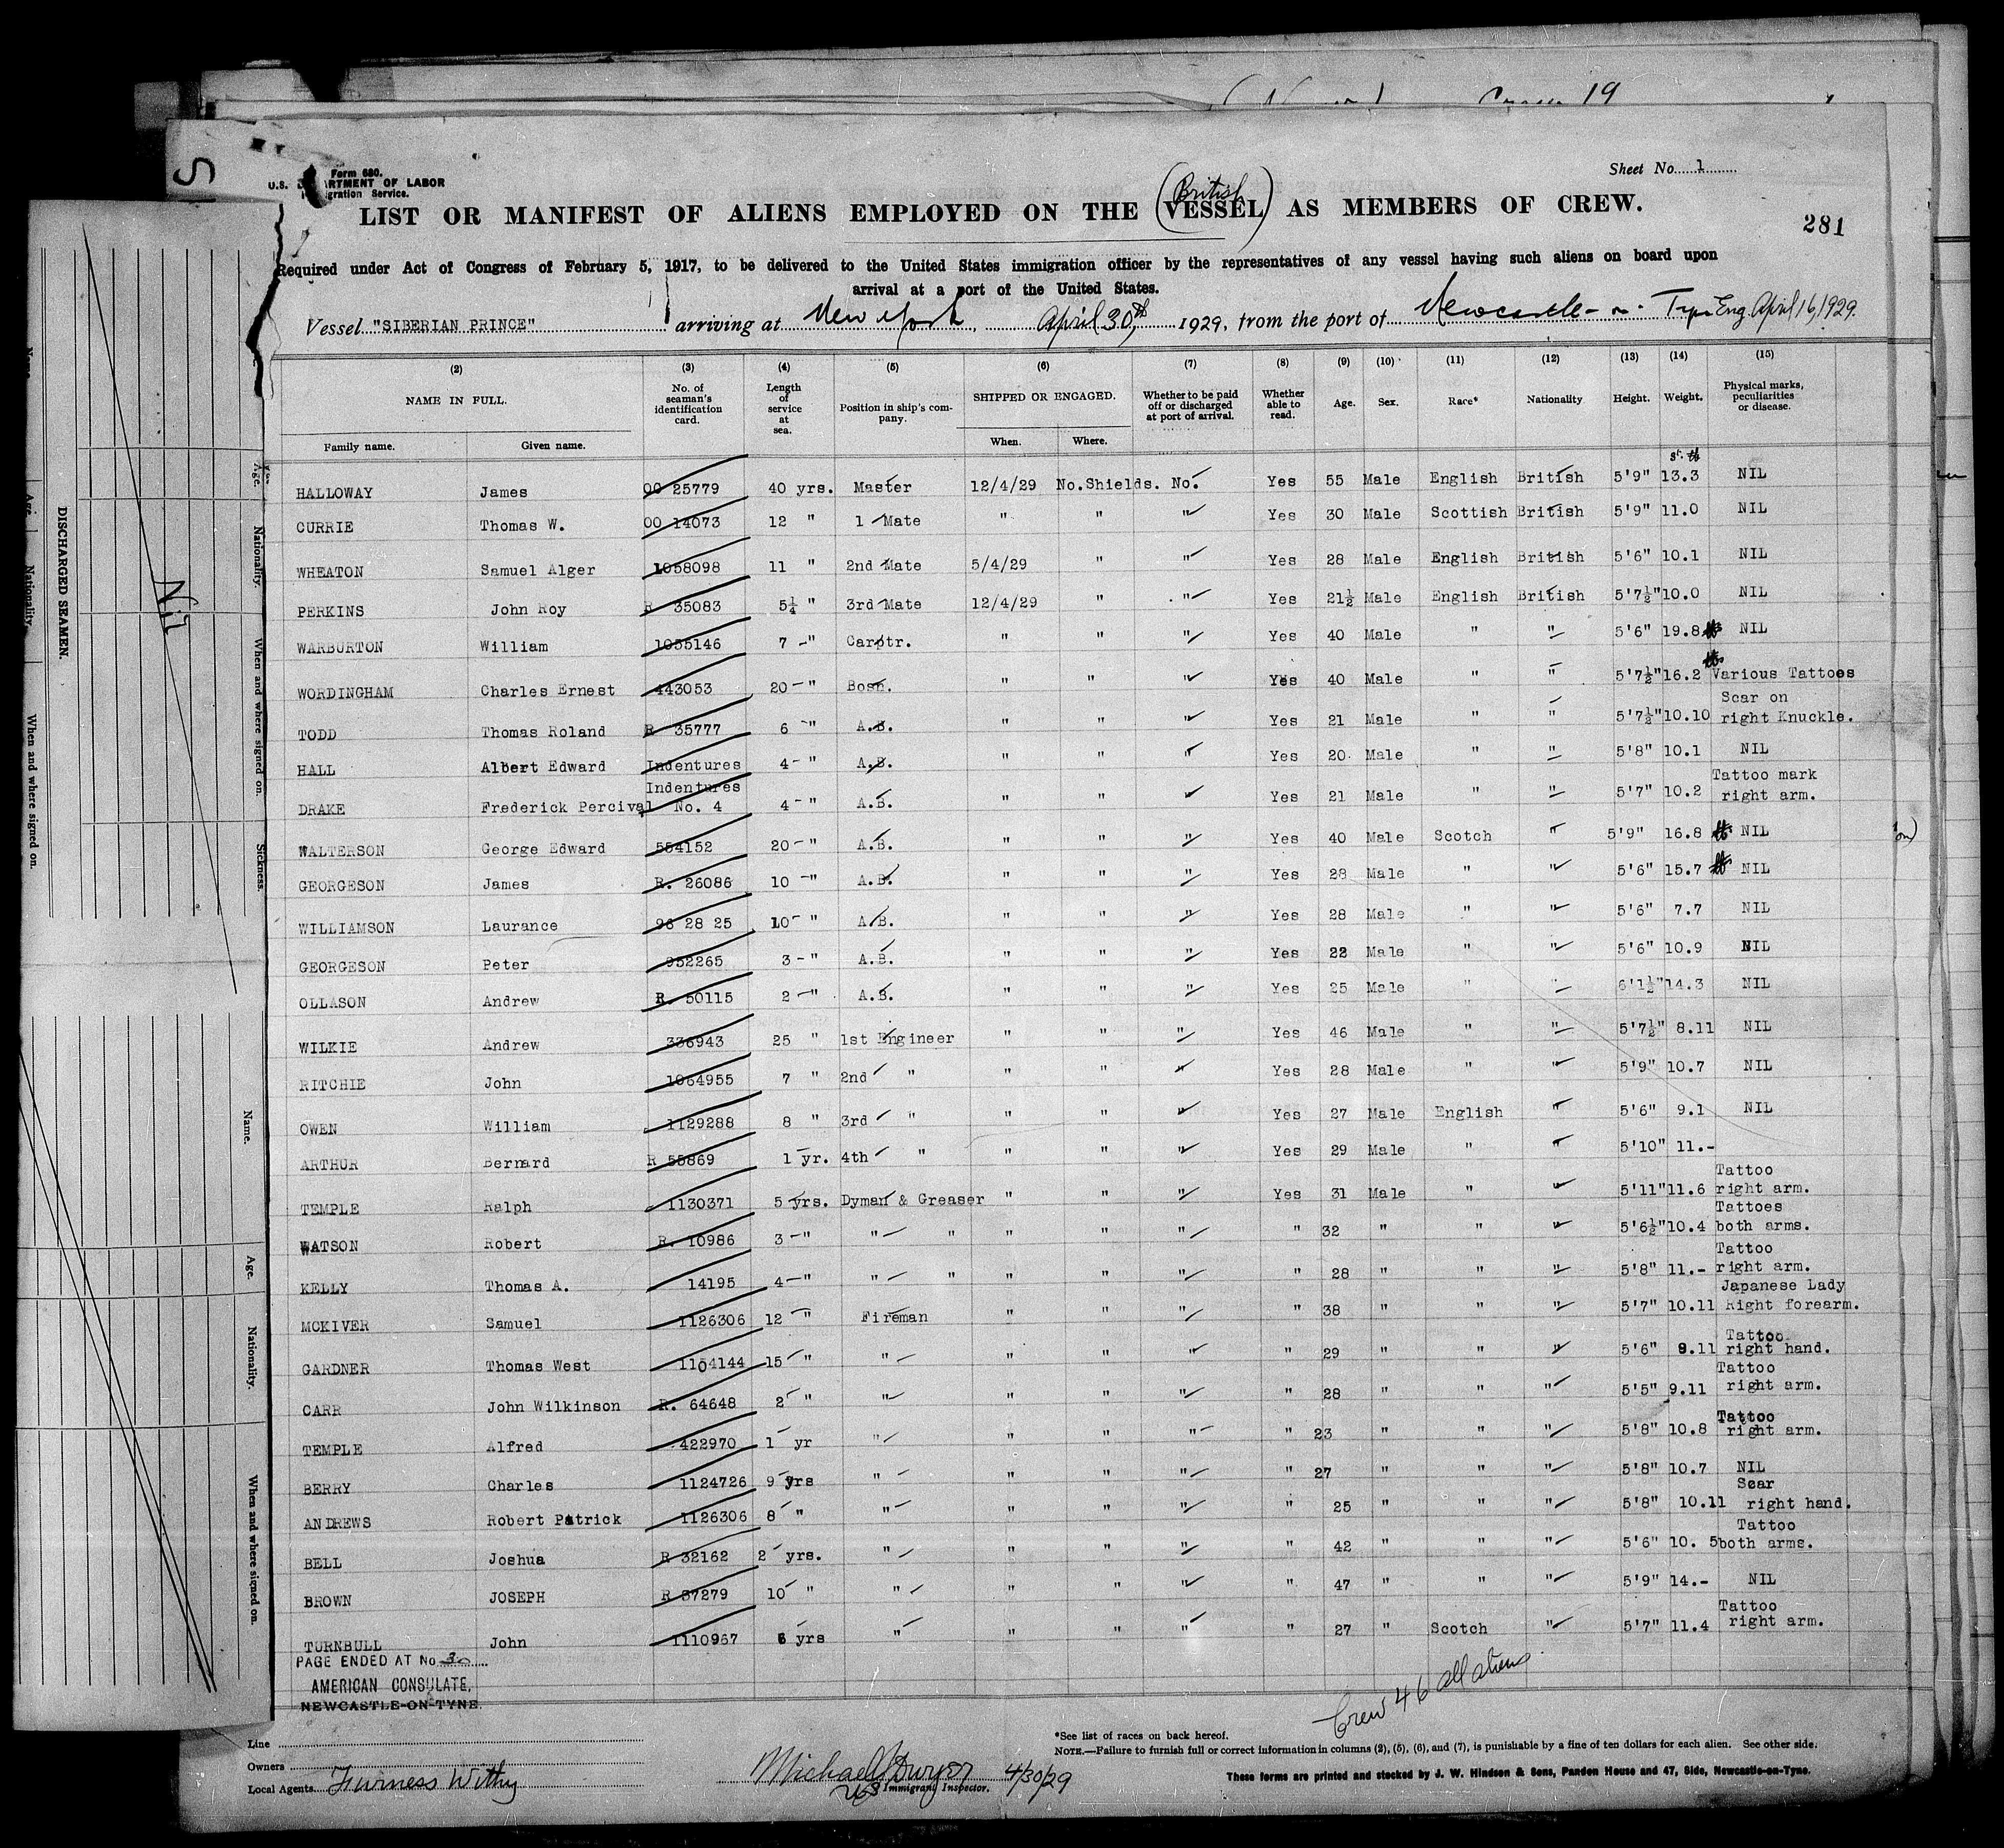 Sheet No. 1
Form 680.
U.S. DEPARTMENT OF LABOR
Immigration Service.
(British)
LIST OR MANIFEST OF ALIENS EMPLOYED ON THE (VESSEL) AS MEMBERS OF CREW.
281
Required under Act of Congress of February 5, 1917, to be delivered to the United States immigration officer by the representatives of any vessel having such aliens on board upon
arrival at a port of the United States.
Vessel "SIBERIAN PRINCE" arriving at New York, April 30th, 1929, from the port of Newcastle-on-Tyne Eng. April 16, 1929.
(2) (3) (4) (5) (6) (7) (8) (9) (10) (11) (12) (13) (14) (15)
NAME IN FULL. No. of seaman's identification card. Length of service at sea. Position in ship's company. SHIPPED OR ENGAGED. Whether to be paid off or discharged at port of arrival. Whether able to read. Age. Sex. Race* Nationality Height. Weight. Physical marks, peculiarities or disease.
Family name. Given name. When. Where.
st. lb
HALLOWAY James OO 25779 40 yrs. Master 12/4/29 No.Shields. No. Yes 55 Male English British 5'9" 13.3 NIL
CURRIE Thomas W. OO 14073 12 " 1 Mate " " " Yes 30 Male Scottish British 5'9" 11.0 NIL
WHEATON Samuel Alger 1058098 11 " 2nd Mate 5/4/29 " " Yes 28 Male English British 5'6" 10.1 NIL
PERKINS John Roy R 35083 5¼ " 3rd Mate 12/4/29 " " Yes 21½ Male English British 5'7½" 10.0 NIL
WARBURTON William 1055146 7 " Carptr. " " " Yes 40 Male " " 5'6" 19.8 NIL
WORDINGHAM Charles Ernest 443053 20 " Bosn. " " " Yes 40 Male " " 5'7½" 16.2 Various Tattoes
TODD Thomas Roland R 35777 6 " A.B. " " " Yes 21 Male " " 5'7½" 10.10 Scar on right Knuckle.
HALL Albert Edward Indentures 4 " A.B. " " " Yes 20 Male " " 5'8" 10.1 NIL
DRAKE Frederick Percival Indentures No. 4 4 " A.B. " " " Yes 21 Male " " 5'7" 10.2 Tattoo mark right arm.
WALTERSON George Edward 554152 20 " A.B. " " Yes 40 Male Scotch " 5'9" 16.8 NIL
GEORGESON James R. 26086 10 " A.B. " " " Yes 28 Male " " 5'6" 15.7 NIL
WILLIAMSON Laurance 96 28 25 10 " A.B. " " " Yes 28 Male " " 5'6" 7.7 NIL
GEORGESON Peter 952265 3 " A.B. " " " Yes 22 Male " " 5'6" 10.9 NIL
OLLASON Andrew R. 50115 2 " A.B. " " " Yes 25 Male " " 6'1½" 14.3 NIL
WILKIE Andrew 336943 25 " 1st Engineer " " " Yes 46 Male " " 5'7½" 8.11 NIL
RITCHIE John 1064955 7 " 2nd " " " " Yes 28 Male " " 5'9" 10.7 NIL
OWEN William 1129288 8 " 3rd " " " " Yes 27 Male English " 5'6" 9.1 NIL
ARTHUR Bernard R 55869 1 yr. 4th " " " " Yes 29 Male " " 5'10" 11.-
TEMPLE Ralph 1130371 5 yrs. Dyman & Greaser " " " Yes 31 Male " " 5'11" 11.6 Tattoo right arm.
WATSON Robert R. 10986 3 " " " " " " " 32 " " " 5'6½" 10.4 Tattoes both arms.
KELLY Thomas A. 14195 4 " " " " " " " 28 " " " 5'8" 11.- Tattoo right arm.
MCKIVER Samuel 1126306 12 " Fireman " " " " 38 " " " 5'7" 10.11 Japanese Lady Right forearm.
GARDNER Thomas West 1104144 15 " " " " " " 29 " " " 5'6" 9.11 Tattoo right hand.
CARR John Wilkinson R. 64648 2 " " " " " " 28 " " " 5'5" 9.11 Tattoo right arm.
TEMPLE Alfred 422970 1 yr " " " " " 23 " " " 5'8" 10.8 Tattoo right arm.
BERRY Charles 1124726 9 yrs " " " " " 27 " " " 5'8" 10.7 NIL
ANDREWS Robert Patrick 1126306 8 " " " " " " 25 " " " 5'8" 10.11 Scar right hand.
BELL Joshua R 32162 2 yrs. " " " " " 42 " " " 5'6" 10. 5 Tattoo both arms.
BROWN JOSEPH R 37279 10 " " " " " " 47 " " " 5'9" 14.- NIL
TURNBULL John 1110967 6 yrs " " " " " 27 " Scotch " 5'7" 11.4 Tattoo right arm.
PAGE ENDED AT No 30
AMERICAN CONSULATE,
NEWCASTLE-ON-TYNE.
Crew 46 all aliens
Line
Owners
Local Agents Furness Withy
Michael J Dwyer 4/30/29
US Immigrant Inspector.
*See list of races on back hereof.
NOTE.—Failure to furnish full or correct information in columns (2), (5), (6), and (7), is punishable by a fine of ten dollars for each alien. See other side.
These forms are printed and stocked by J. W. Hindson & Sons, Pandon House and 47, Side, Newcastle-on-Tyne.
DISCHARGED SEAMEN.
Nil
Age.
Nationality.
When and where signed on.
Sickness.
Name.
Age.
Nationality.
When and where signed on.
Nationality.
When and where signed on.